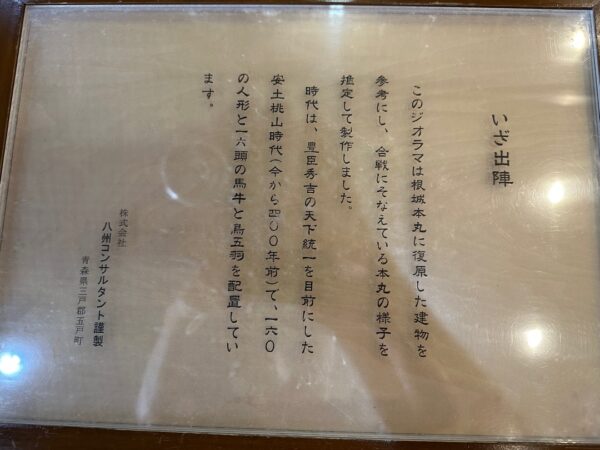 いざ出陣
このジオラマは根城本丸に復原した建物を
参考にし、合戦にそなえている本丸の様子を
推定して製作しました。
時代は、豊臣秀吉の天下統一を目前にした
安土桃山時代(今から四〇〇年前)で、一六〇
の人形と一六頭の馬牛と鳥五羽を配置してい
ます。
株式会社
八州コンサルタント謹製
青森県三戸郡五戸町